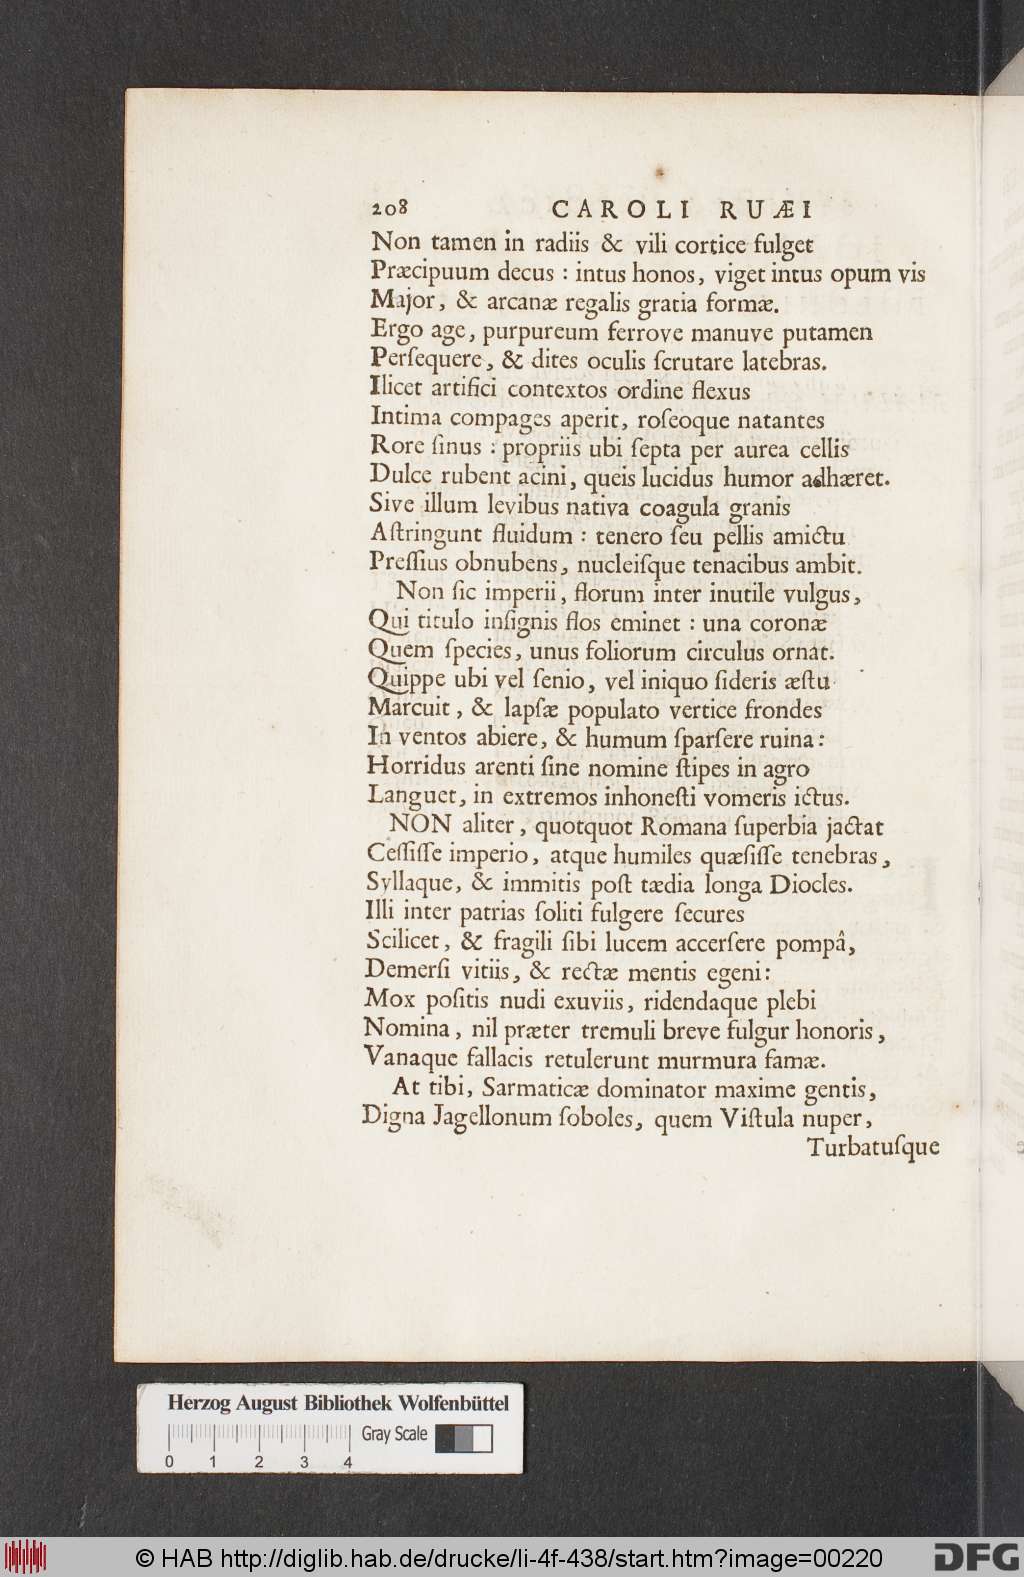 208 CAROLI RUÆI
Non tamen in radiis & vili cortice fulget
Præcipuum decus : intus honos, viget intus opum vis
Major, & arcanæ regalis gratia formæ.
Ergo age, purpureum ferrove manuve putamen
Perſequere, & dites oculis ſcrutare latebras.
Ilicet artifici contextos ordine flexus
Intima compages aperit, roſeoque natantes
Rore ſinus : propriis ubi ſepta per aurea cellis
Dulce rubent acini, queis lucidus humor adhæret.
Sive illum levibus nativa coagula granis
Aſtringunt fluidum : tenero ſeu pellis amictu
Preſſius obnubens, nucleiſque tenacibus ambit.
Non ſic imperii, florum inter inutile vulgus,
Qui titulo inſignis flos eminet : una coronæ
Quem ſpecies, unus foliorum circulus ornat.
Quippe ubi vel ſenio, vel iniquo ſideris æſtu
Marcuit, & lapſæ populato vertice frondes
In ventos abiere, & humum ſparſere ruina:
Horridus arenti ſine nomine ſtipes in agro
Languet, in extremos inhoneſti vomeris ictus.
NON aliter, quotquot Romana ſuperbia jactat
Ceſſiſſe imperio, atque humiles quæſiſſe tenebras,
Syllaque, & immitis poſt tædia longa Diocles.
Illi inter patrias ſoliti fulgere ſecures
Scilicet, & fragili ſibi lucem accerſere pompâ,
Demerſi vitiis, & rectæ mentis egeni:
Mox poſitis nudi exuviis, ridendaque plebi
Nomina, nil præter tremuli breve fulgur honoris,
Vanaque fallacis retulerunt murmura famæ.
At tibi, Sarmaticæ dominator maxime gentis,
Digna Jagellonum ſoboles, quem Viſtula nuper,
Turbatuſque
Herzog August Bibliothek Wolfenbüttel
Gray Scale
0 1 2 3 4
© HAB http://diglib.hab.de/drucke/li-4f-438/start.htm?image=00220
DFG